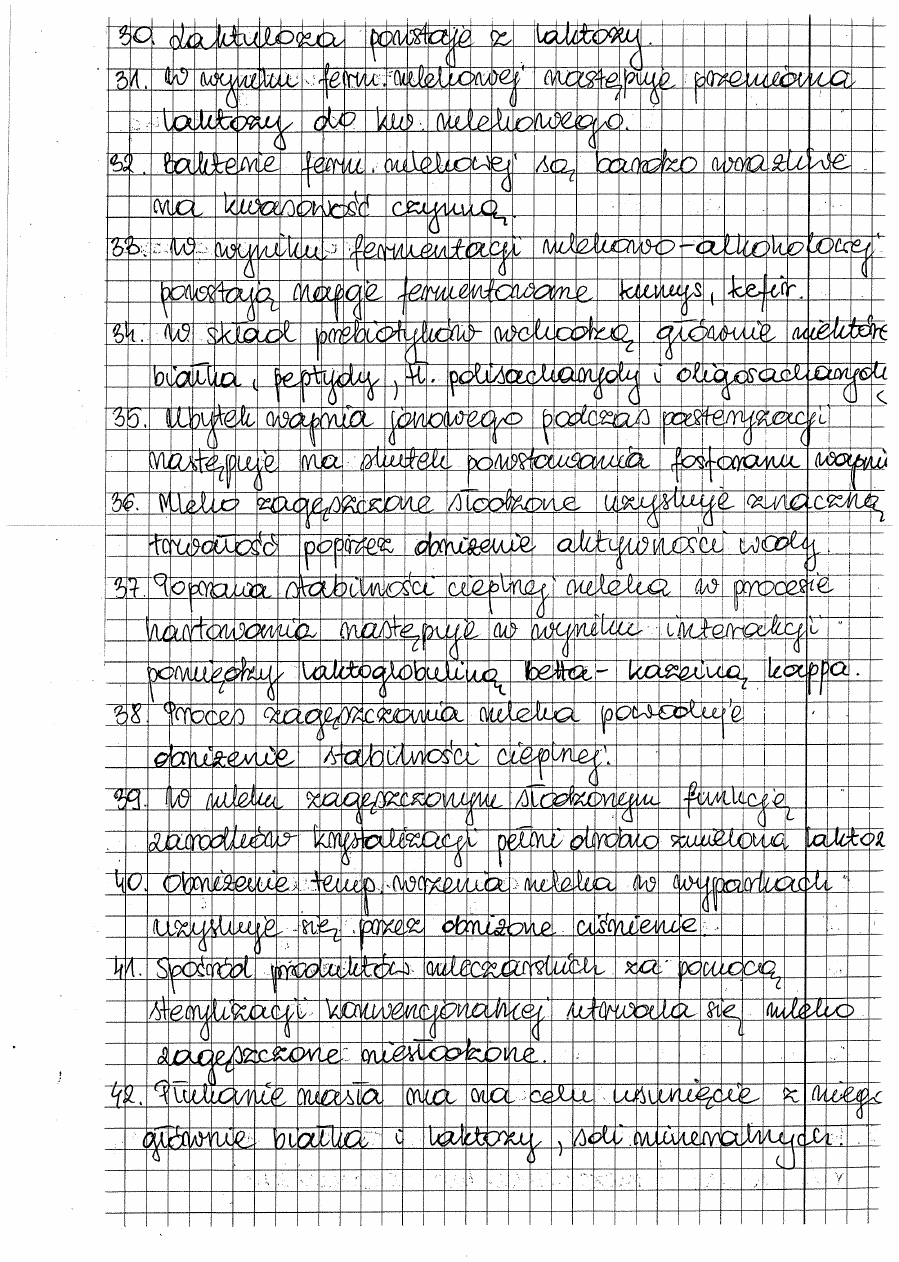 30. Laktuloza powstaje z laktozy.
31. W wyniku ferm. mlekowej następuje przemiana
laktozy do kw. mlekowego.
32. Bakterie ferm. mlekowej są bardzo wrażliwe
na kwasowość czynną.
33. W wyniku fermentacji mlekowo-alkoholowej
powstają napoje fermentowane kumys, kefir.
34. W skład prebiotyków wchodzą głównie niektóre
białka, peptydy, tł. polisacharydy i oligosacharyd
35. Ubytek wapnia jonowego podczas pasteryzacji
następuje na skutek powstawania fosforanu wapni
36. Mleko zagęszczone słodzone uzyskuje znaczną
trwałość poprzez obniżenie aktywności wody
37. Poprawa stabilności cieplnej mleka w procesie
hartowania następuje w wyniku interakcji
pomiędzy laktoglobuliną betta- kazeiną kappa.
38. Proces zagęszczania mleka powoduje
obniżenie stabilności cieplnej.
39. W mleku zagęszczonym słodzonym funkcję
zarodków krystalizacji pełni drobno zmielona laktoz
40. Obniżenie temp. wrzenia mleka w wyparkach
uzyskuje się przez obniżone ciśnienie.
41. Spośród produktów mleczarskich za pomocą
sterylizacji konwencjonalnej utrwala się mleko
zagęszczone niesłodzone.
42. Płukanie masła ma na celu usunięcie z niego
głównie białka i laktozy, soli mineralnych.